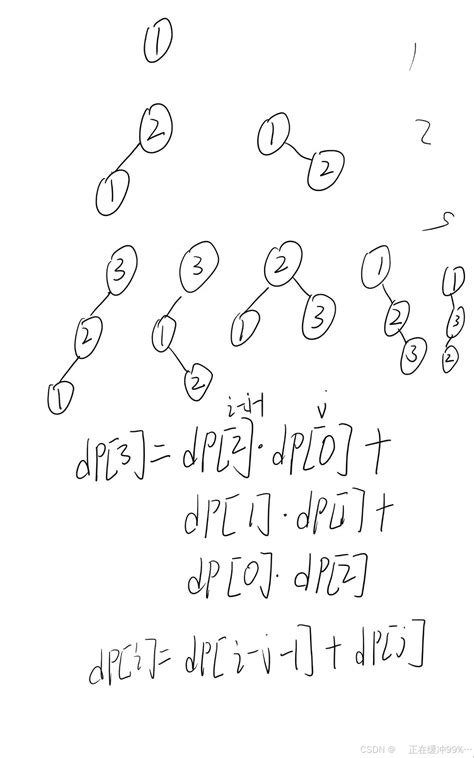 1 1
2 1 2
1 2
5
3 3 2 1 1
2 1 1 3 2 3
1 2 3 2
i-j-1 j
dp[3]=dp[2]·dp[0]+
dp[1]·dp[1]+
dp[0]·dp[2]
dp[i]=dp[i-j-1]+dp[j]
CSDN @ 正在缓冲99%…